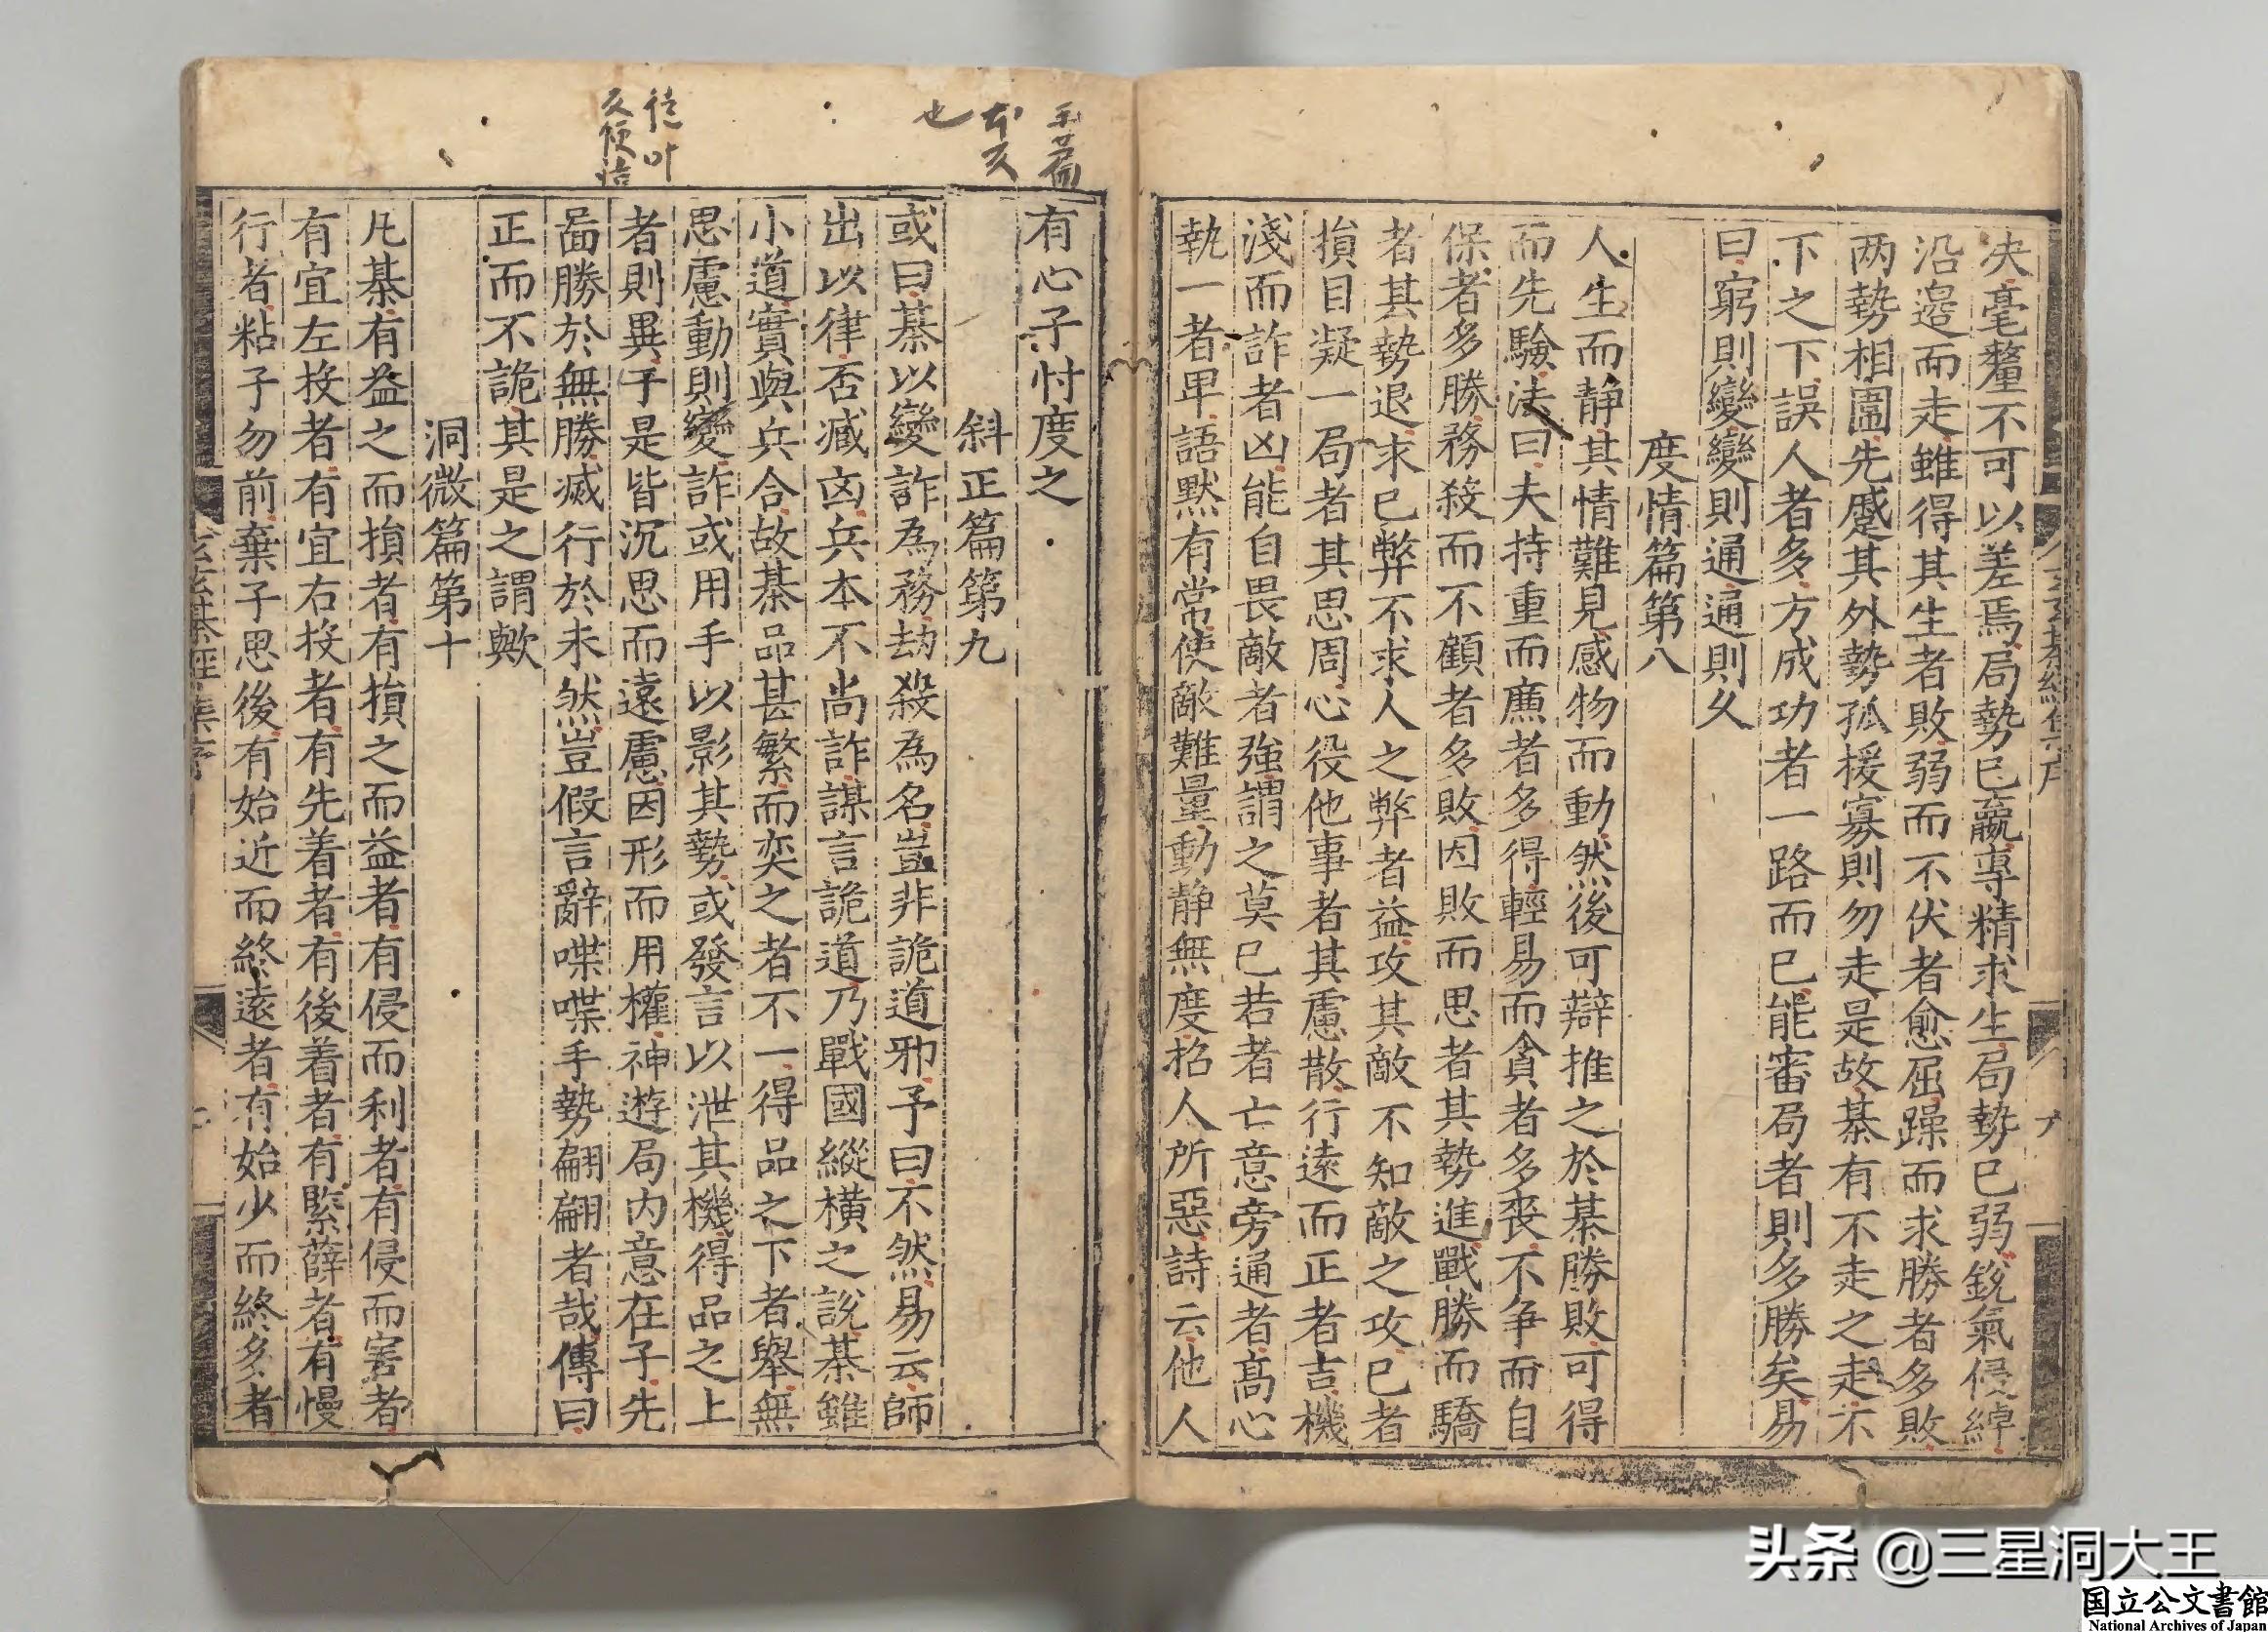 决毫釐不可以差焉局勢已羸專精求生局勢已弱銳氣侵綽
沿邉而走雖得其生者敗弱而不伏者愈屈躁而求勝者多敗
两勢相圍先蹙其外勢孤援寡則勿走是故棊有不走之走不
下之下誤人者多方成功者一路而已能審局者則多勝矣易
曰窮則變變則通通則久
度情篇第八
人生而静其情難見感物而動然後可辯推之於棊勝敗可得
而先驗法曰夫持重而廉者多得輕易而貪者多喪不争而自
保者多勝務殺而不顧者多敗因敗而思者其勢進戰勝而驕
者其勢退求已弊不求人之弊者益攻其敵不知敵之攻已者
損目凝一局者其思周心役他事者其慮散行遠而正者吉機
淺而詐者凶能自畏敵者強謂之莫已若者亡意旁通者髙心
執一者卑語默有常使敵難量動静無度招人所惡詩云他人
有心予忖度之
斜正篇第九
或曰棊以變詐為務劫殺為名豈非詭道邪予曰不然易云師
出以律否臧凶兵本不尚詐謀言詭道乃戰國縱橫之說棊雖
小道實與兵合故棊品甚繁而奕之者不一得品之下者舉無
思慮動則變詐或用手以影其勢或發言以泄其機得品之上
者則異于是皆沉思而遠慮因形而用權神遊局内意在子先
啚勝於無勝滅行於未然豈假言辭喋喋手勢翩翩者哉傳曰
正而不詭其是之謂歟
洞微篇第十
凡棊有益之而損者有損之而益者有侵而利者有侵而害者
有宜左投者有宜右投者有先着者有後着者有緊薜者有慢
行者粘子勿前棄子思後有始近而終遠者有始少而終多者
玉篇
也
頭条 @三星洞大王
国立公文書館
National Archives of Japan